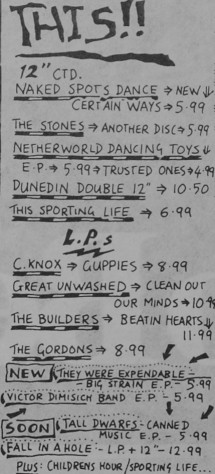 THIS!!
12" CTD.
NAKED SPOTS DANCE ⇒ NEW ⇓
CERTAIN WAYS ⇒ 5·99
THE STONES ⇒ ANOTHER DISC ⇒ 5·99
NETHERWORLD DANCING TOYS ⇓
E.P. ⇒ 5·99 ⇒ TRUSTED ONES ⇒ 4·99
DUNEDIN DOUBLE 12" ⇒ 10·50
THIS SPORTING LIFE ⇒ 6·99
L.P.s
C. KNOX ⇒ GUPPIES ⇒ 8·99
GREAT UNWASHED ⇒ CLEAN OUT
OUR MINDS ⇒ 10·99
THE BUILDERS ⇒ BEATIN HEARTS ⇓
11·99
THE GORDONS ⇒ 8·99
NEW THEY WERE EXPENDABLE :-
BIG STRAIN E.P. - 5·99
VICTOR DIMISICH BAND E.P. - 5·99
SOON TALL DWARFS:- CANNED
MUSIC E.P. - 5·99
FALL IN A HOLE :- L.P. + 12" - 12·99
PLUS: CHILDRENS HOUR / SPORTING LIFE..